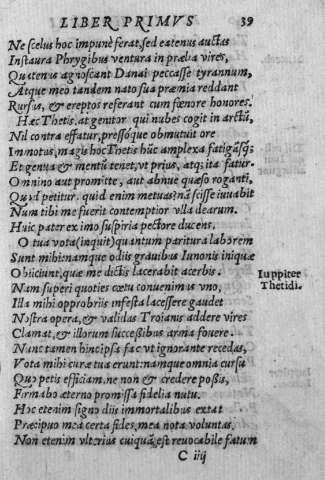 LIBER PRIMVS 39
Ne scelus hoc impunè ferat, sed eatenus auctas
Instaura Phrygibus ventura in prælia vires,
Quatenus agnoscant Danai peccasse tyrannum,
Atque meo tandem nato sua præmia reddant
Rursus, & ereptos referant cum fœnore honores.
Hæc Thetis. at genitor qui nubes cogit in arctũ,
Nil contra effatur, pressoque obmutuit ore
Immotus, magis hoc Thetis hũc amplexa fatigãsq;
Et genua & mentũ tenet, vt prius, atq; ita fatur.
Omnino aut promitte, aut abnue quæso roganti,
Quod petitur. quid enim metuas? nã scisse iuuabit
Num tibi me fuerit contemptior vlla dearum.
Huic pater ex imo suspiria pectore ducens,
O tua vota (inquit) quantum paritura laborem
Sunt mihi: namque odiis grauibus Iunonis iniquæ
Obiiciunt, quæ me dictis lacerabit acerbis.
Iuppiter
Thetidi.
Nam superi quoties cœtu conuenimus vno,
Illa mihi opprobriis infesta lacessere gaudet
Nostra opera, & validas Troianis addere vires
Clamat, & illorum successibus arma fouere.
Nunc tamen hinc ipsa fac vt ignorante recedas,
Vota mihi curæ tua erunt: namque omnia cursu
Quo petis efficiam. ne non & credere possis,
Firmabo æterno promissa fidelia nutu.
Hoc etenim signo diis immortalibus extat
Præcipuo mea certa fides, mea nota voluntas.
Non etenim vlterius cuiquã est reuocabile fatum
C iiij